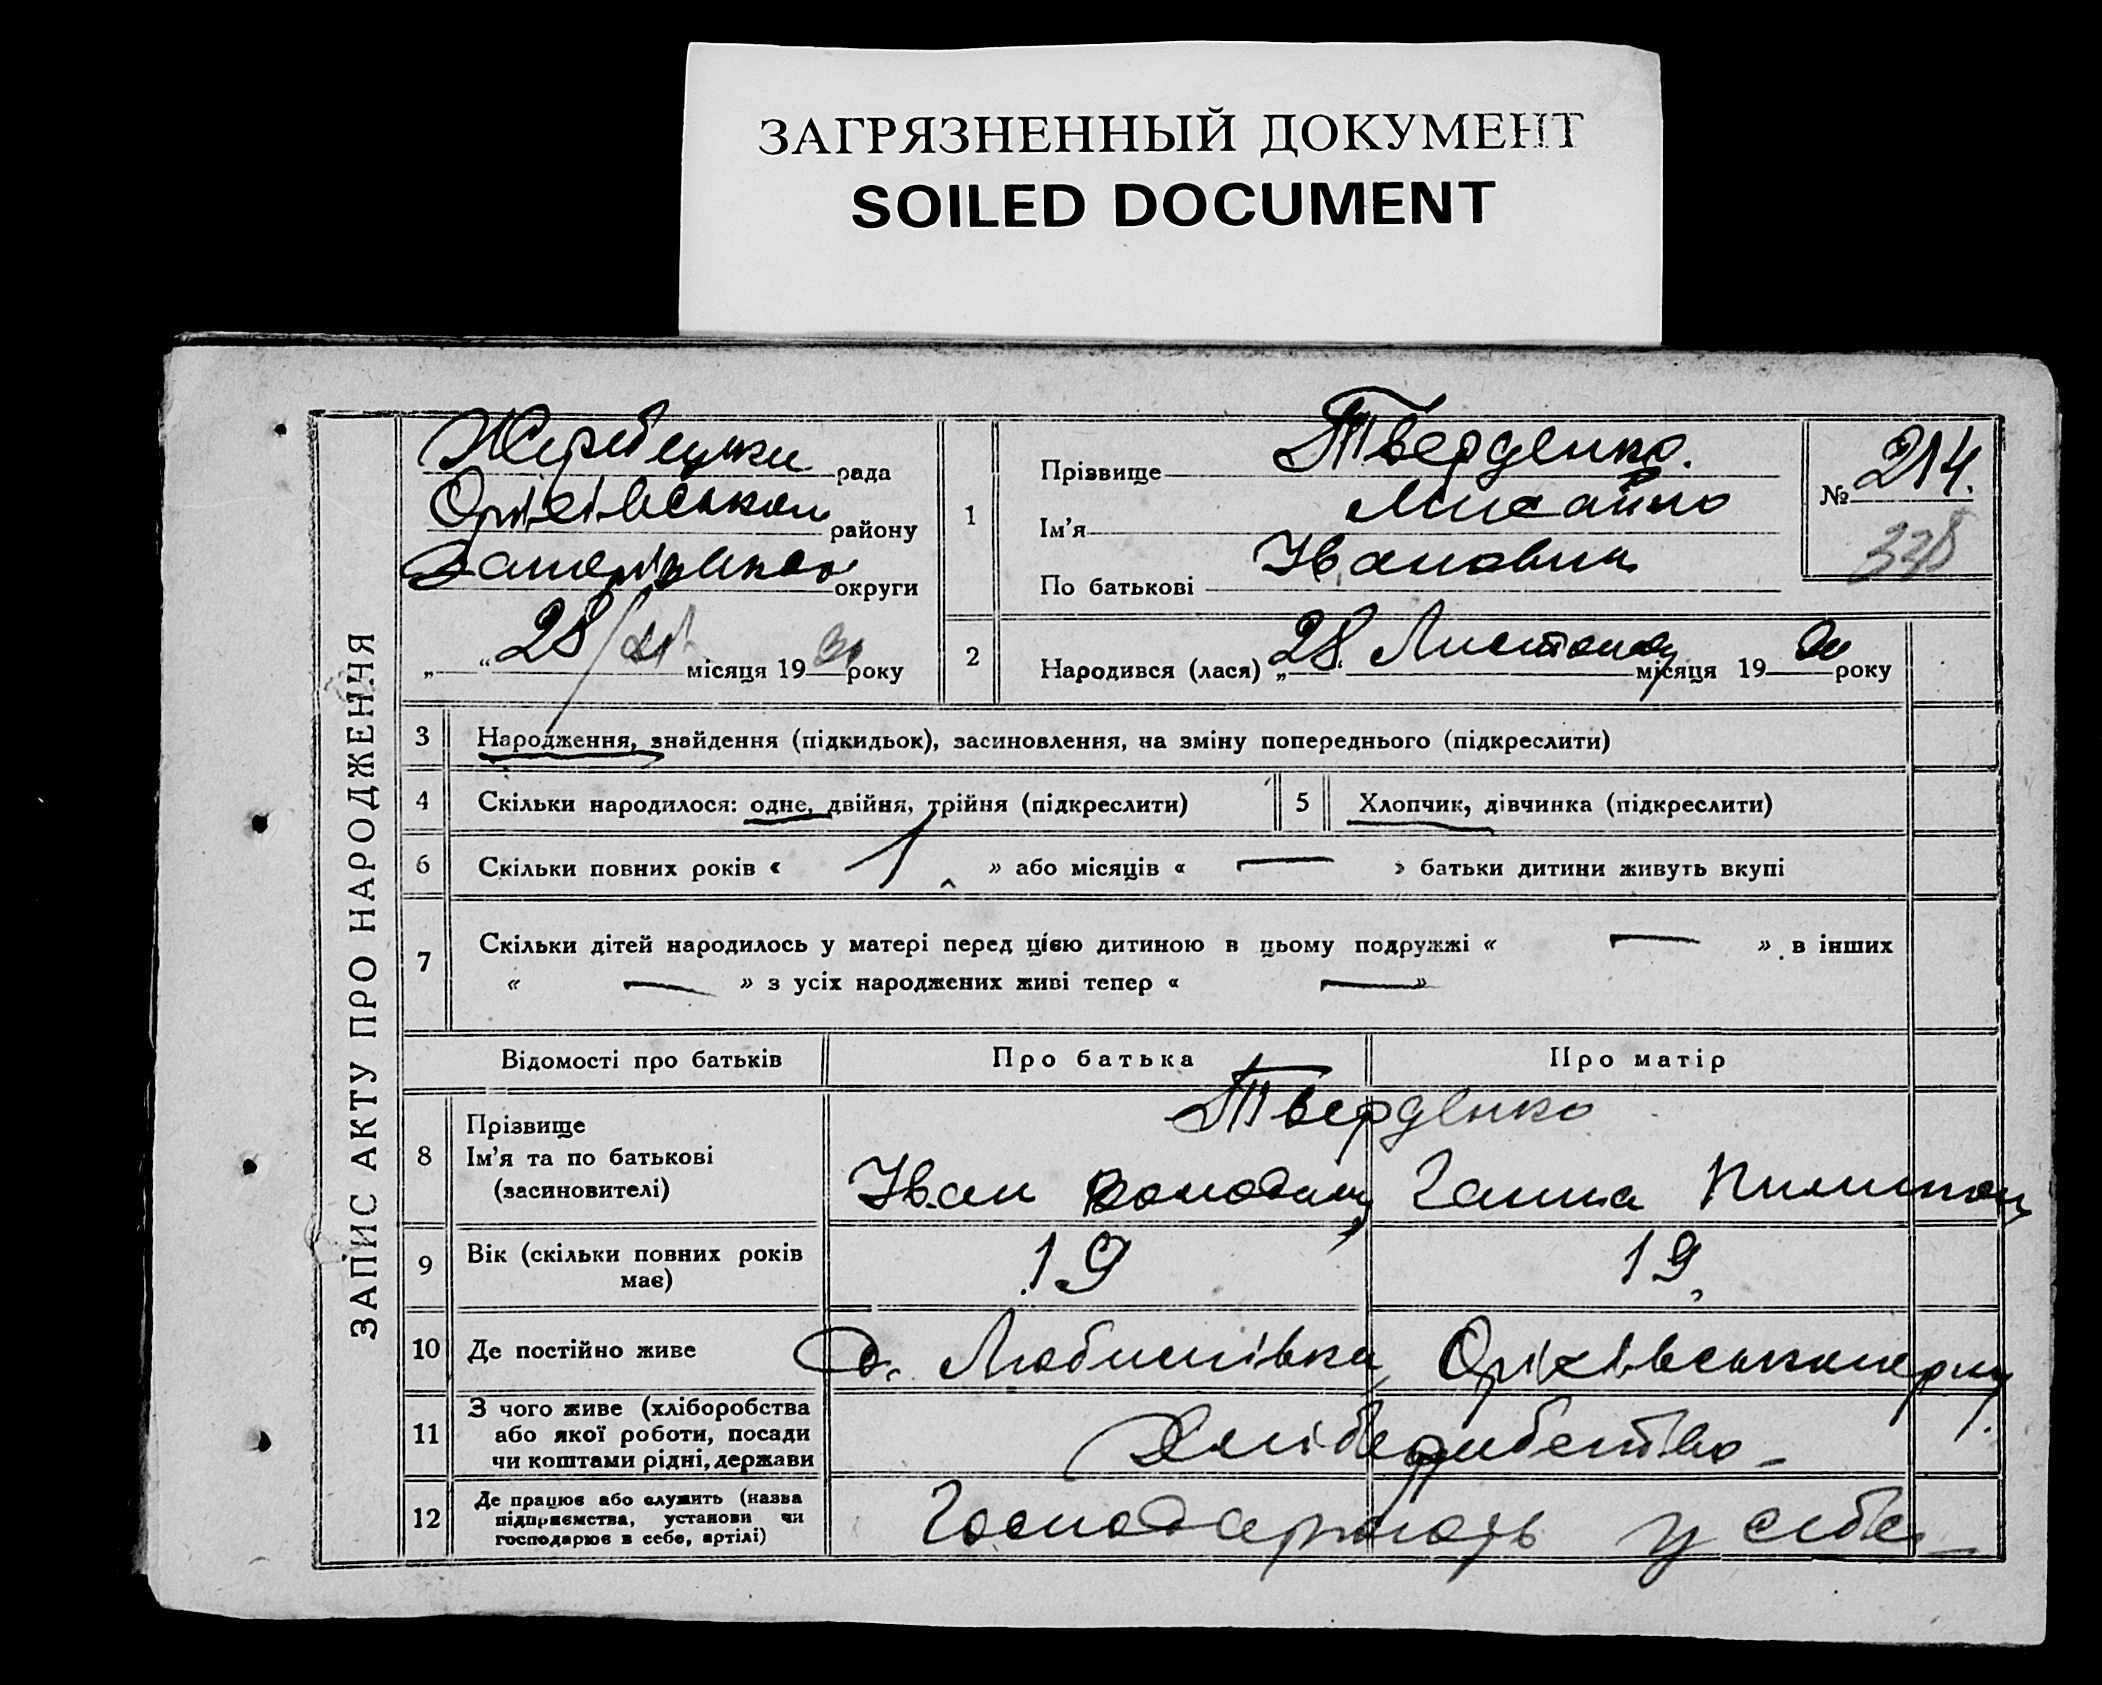 ЗАГРЯЗНЕННЫЙ ДОКУМЕНТ
SOILED DOCUMENT
ЗАПИС АКТУ ПРО НАРОДЖЕННЯ
Жеребецька рада
Оріхівського району
Запорізької округи
28/ місяця 19 30 року
1
Прізвище Твердченко.
Ім’я Михайло
По батькові Іванович
№ 214.
338
2
Народився (лася) „28“ Листопаду місяця 19 30 року
3 Народження, знайдення (підкидьок), засиновлення, на зміну попереднього (підкреслити)
4 Скільки народилося: одне, двійня, трійня (підкреслити)
5 Хлопчик, дівчинка (підкреслити)
6 Скільки повних років « 1 » або місяців « — » батьки дитини живуть вкупі
7 Скільки дітей народилось у матері перед цією дитиною в цьому подружжі « — » в інших
« — » з усіх народжених живі тепер « — »
Відомості про батьків Про батька Про матір
8 Прізвище
Ім’я та по батькові
(засиновителі)
Твердченко
Іван Ганна
9 Вік (скільки повних років
має)
19 19
10 Де постійно живе с. Любимівка Оріхівського р-ну
11 З чого живе (хліборобства
або якої роботи, посади
чи коштами рідні, держави
Хліборобство
12 Де працює або служить (назва
підприємства, установи чи
господарює в себе, артілі)
Господарюють у себе